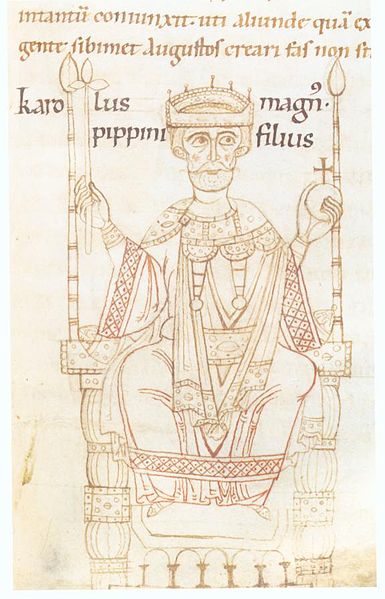 intantū coniunxit. uti aliunde quā ex
gente sibimet Augustos creari fas non
karo lus magn̄·
pippini filius